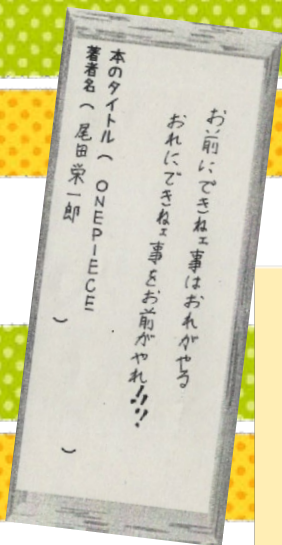 お前にできねェ事はおれがやる
おれにできねェ事をお前がやれ!!!
本のタイトル( ONEPIECE )
著者名( 尾田栄一郎 )